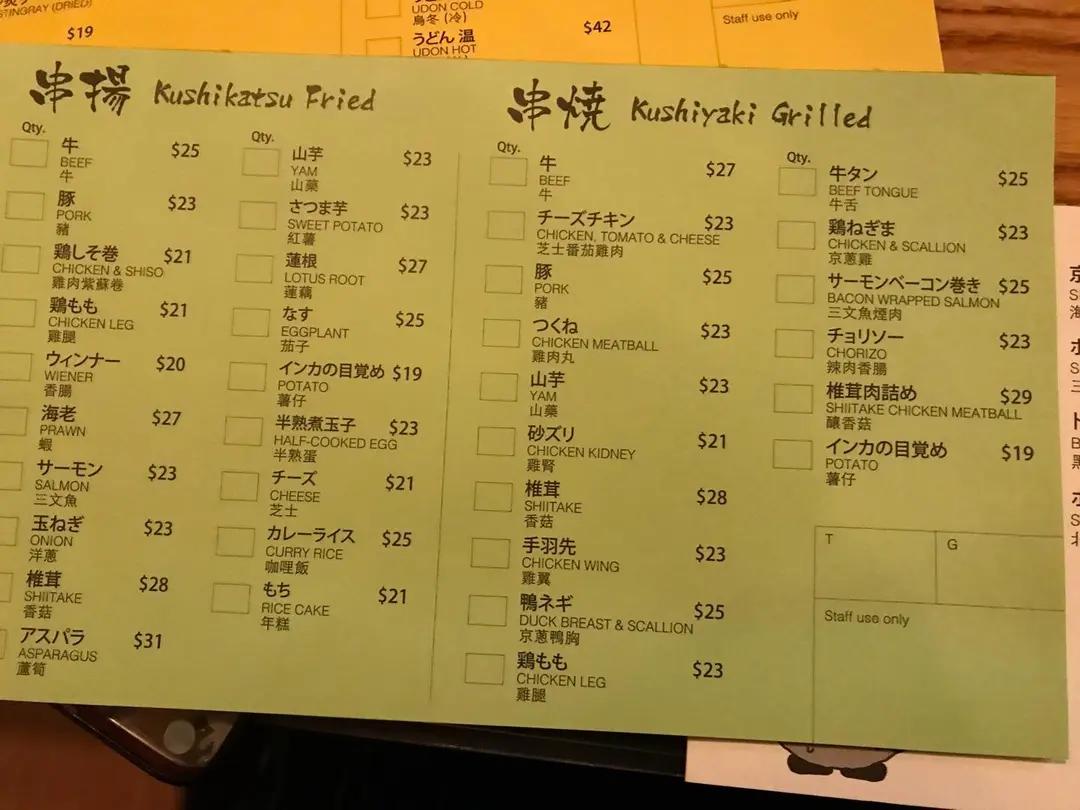 STINGRAY (DRIED)
$19
UDON COLD
烏冬 (冷)
うどん 温
UDON HOT
$42
Staff use only
串揚 Kushikatsu Fried
Qty.
牛 $25
BEEF
牛
豚 $23
PORK
豬
鶏しそ巻 $21
CHICKEN & SHISO
雞肉紫蘇卷
鶏もも $21
CHICKEN LEG
雞腿
ウィンナー $20
WIENER
香腸
海老 $27
PRAWN
蝦
サーモン $23
SALMON
三文魚
玉ねぎ $23
ONION
洋蔥
椎茸 $28
SHIITAKE
香菇
アスパラ $31
ASPARAGUS
蘆筍
Qty.
山芋 $23
YAM
山藥
さつま芋 $23
SWEET POTATO
紅薯
蓮根 $27
LOTUS ROOT
蓮藕
なす $25
EGGPLANT
茄子
インカの目覚め $19
POTATO
薯仔
半熟煮玉子 $23
HALF-COOKED EGG
半熟蛋
チーズ $21
CHEESE
芝士
カレーライス $25
CURRY RICE
咖哩飯
もち $21
RICE CAKE
年糕
串焼 Kushiyaki Grilled
Qty.
牛 $27
BEEF
牛
チーズチキン $23
CHICKEN, TOMATO & CHEESE
芝士番茄雞肉
豚 $25
PORK
豬
つくね $23
CHICKEN MEATBALL
雞肉丸
山芋 $23
YAM
山藥
砂ズリ $21
CHICKEN KIDNEY
雞腎
椎茸 $28
SHIITAKE
香菇
手羽先 $23
CHICKEN WING
雞翼
鴨ネギ $25
DUCK BREAST & SCALLION
京蔥鴨胸
鶏もも $23
CHICKEN LEG
雞腿
Qty.
牛タン $25
BEEF TONGUE
牛舌
鶏ねぎま $23
CHICKEN & SCALLION
京蔥雞
サーモンベーコン巻き $25
BACON WRAPPED SALMON
三文魚煙肉
チョリソー $23
CHORIZO
辣肉香腸
椎茸肉詰め $29
SHIITAKE CHICKEN MEATBALL
釀香菇
インカの目覚め $19
POTATO
薯仔
T G
Staff use only